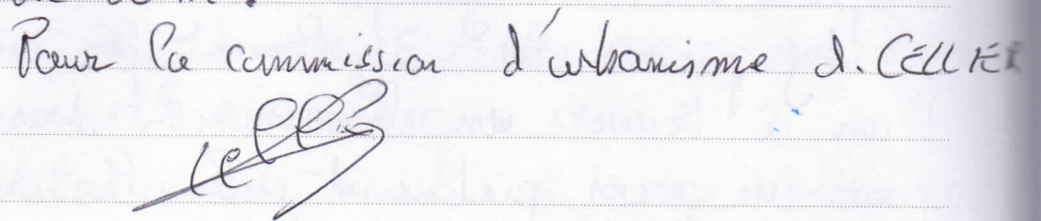 Pour la commission d'urbanisme d. CELLIER